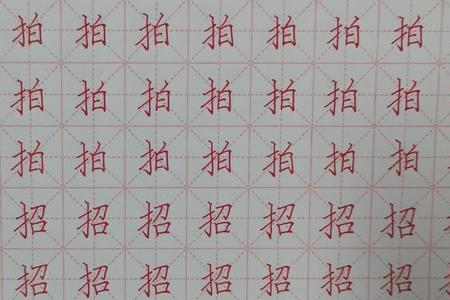 拍拍拍拍拍拍拍
拍拍拍拍拍拍拍
拍拍拍拍拍拍拍
招招招招招招招
招招招招招招招